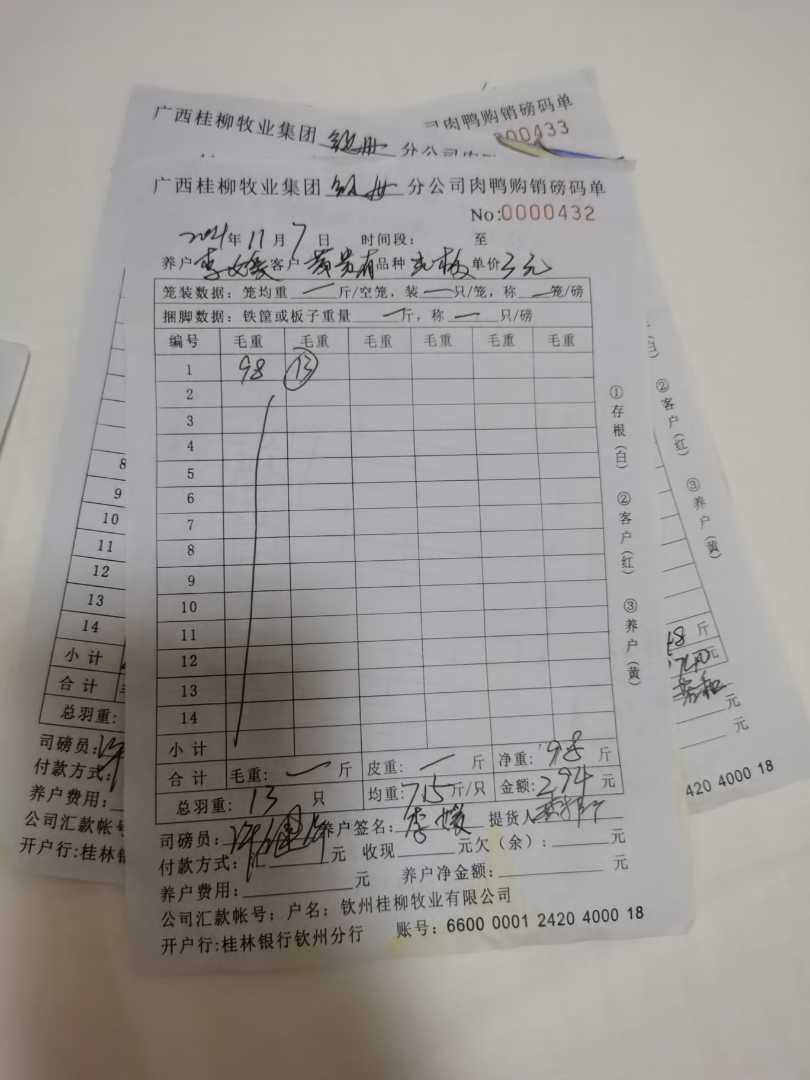 广西桂柳牧业集团 分公司
肉鸭购销磅码单
0000433
广西桂柳牧业集团 分公司肉鸭购销磅码单
No:0000432
2021年11月7日 时间段: 至
养户李媛客户黄贵有品种 单价3元
笼装数据:笼均重 一 斤/空笼,装一只/笼,称 一笼/磅
捆脚数据:铁筐或板子重量 一斤,称一 只/磅
编号 毛重 毛重 毛重 毛重 毛重 毛重
1 98 13
2
3
4
5
6
7
8
9
10
11
12
13
14
小计
合计 毛重: 一 斤 皮重: 一 斤 净重: 98 斤
总羽重: 13 只 均重: 7.5斤/只 金额: 294 元
司磅员: 养户签名: 李媛 提货人
付款方式: 汇 元 收现 元欠(余): 元
养户费用: 元 养户净金额: 元
公司汇款帐号:户名:钦州桂柳牧业有限公司
开户行:桂林银行钦州分行 账号:6600 0001 2420 4000 18
①存根(白) ②客户(红) ③养户(黄)
8
9
10
11
12
13
14
小计
合计
总羽重:
司磅员:
付款方式:
养户费用:
公司汇款帐号
开户行:桂林银
②客户(红) ③养户(黄)
斤
元
元
元
420 4000 18